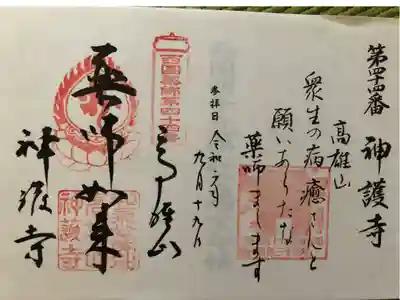 第四十四番 神護寺
高雄山
衆生の病癒さんと
願いあらたな
薬師まします
参拝日 令和元年
九月十九日
西国薬師第四十四番
高雄山
薬師如来
神護寺